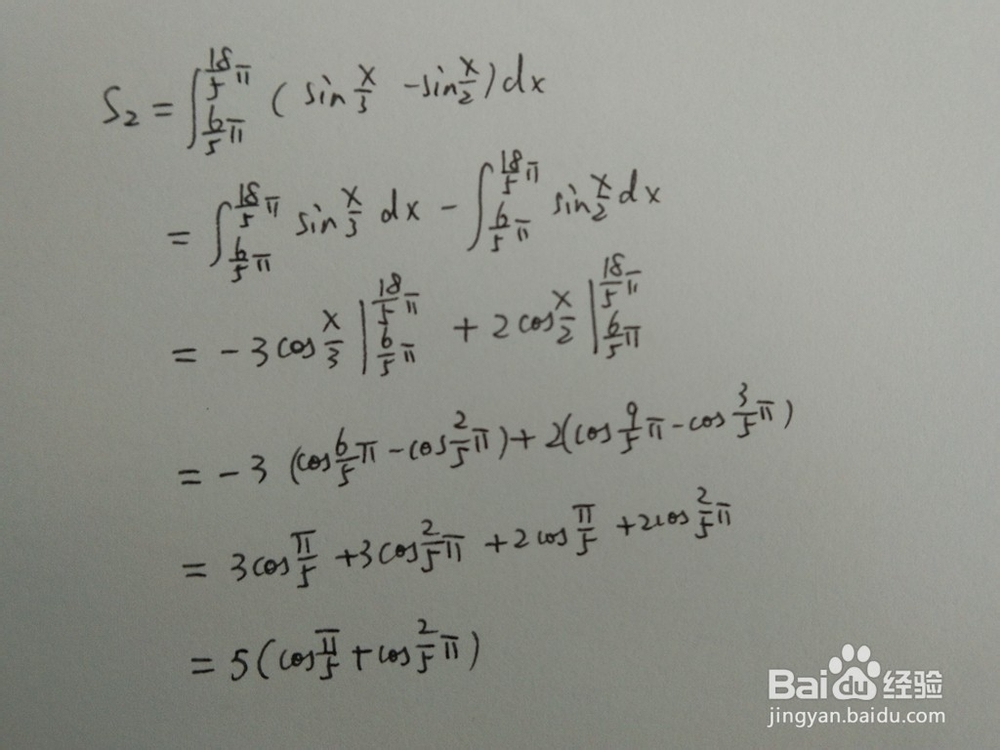 S₂ = ∫_{6/5 π}^{18/5 π} (sin x/3 - sin x/2) dx
= ∫_{6/5 π}^{18/5 π} sin x/3 dx - ∫_{6/5 π}^{18/5 π} sin x/2 dx
= -3 cos x/3 |_{6/5 π}^{18/5 π} + 2 cos x/2 |_{6/5 π}^{18/5 π}
= -3 (cos 6/5 π - cos 2/5 π) + 2(cos 9/5 π - cos 3/5 π)
= 3 cos π/5 + 3 cos 2/5 π + 2 cos π/5 + 2 cos 2/5 π
= 5 (cos π/5 + cos 2/5 π)
Baidu 经验
jingyan.baidu.com